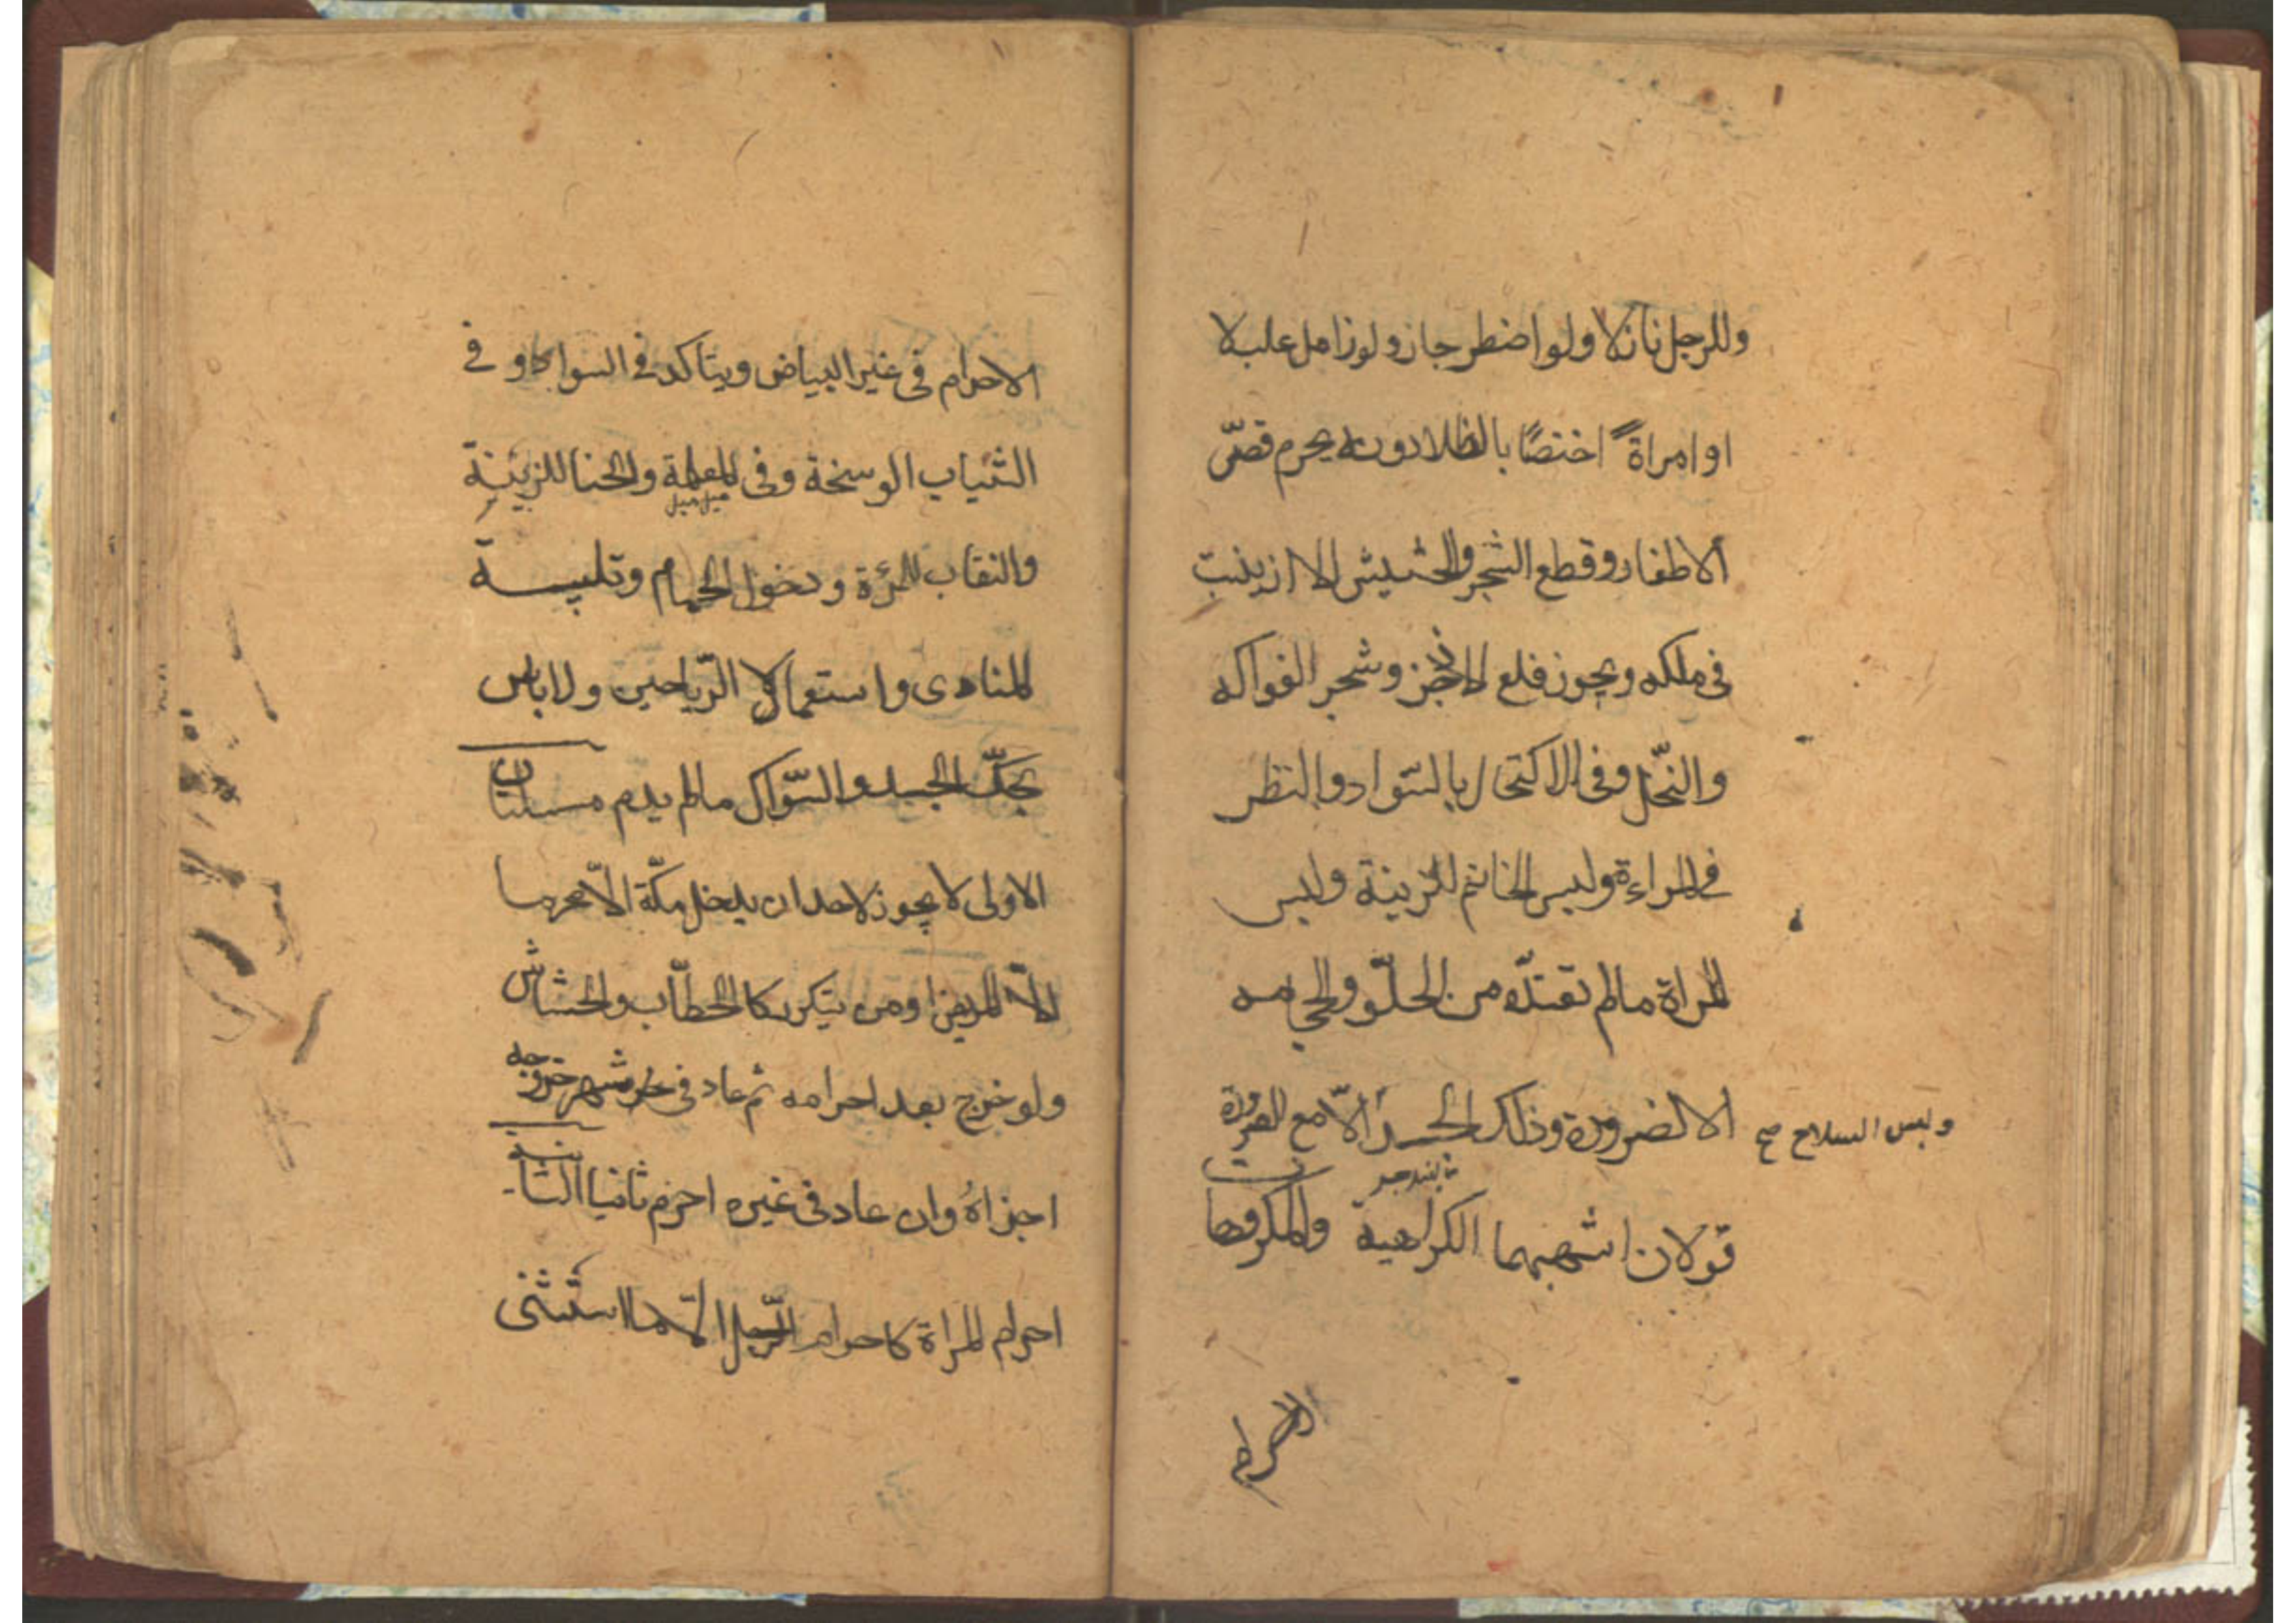 وللرجل نازلا ولو اضطر جاز ولو زامل عليلا
او امراة اختصا بالظلال دونه يحرم قصّ
الاظفار وقطع الشجر والحشيش الا ان ينبت
فى ملكه ويجوز قلع الاذخر وشجر الفواكه
والنّخل وفى الاكتحال بالسّواد والنظر
فى المراءة ولبس الخاتم للزينة ولبس
المراة مالم تعتدّه من الحلىّ والحجامه
الا لضرورة ودلك الجسد الّا مع الضرورة
ولبس السلاح صح
قولان اشبههما الكراهية والمكروهات
الاحرام
الاحرام فى غير البياض ويتاكد فى السواد و فى
الثياب الوسخة وفى المعلمة والحنا للزينة
والنقاب للمرءة ودخول الحمام وتلبيسة
المنادى واستعمال الرّياحين ولا باس
بحكّ الجسد والسّواك مالم يدم مسئلتان
الاولى لا يجوز لاحد ان يدخل مكّة الّا محرما
الّا المريض او من يتكرر كالحطّاب والحشاش
ولو خرج بعد احرامه ثم عاد فى شهر خروجه
اجزاهُ وان عاد فى غيره احرم ثانيا الثانية
احرام المراة كاحرام الرّجل الّا ما استثنى